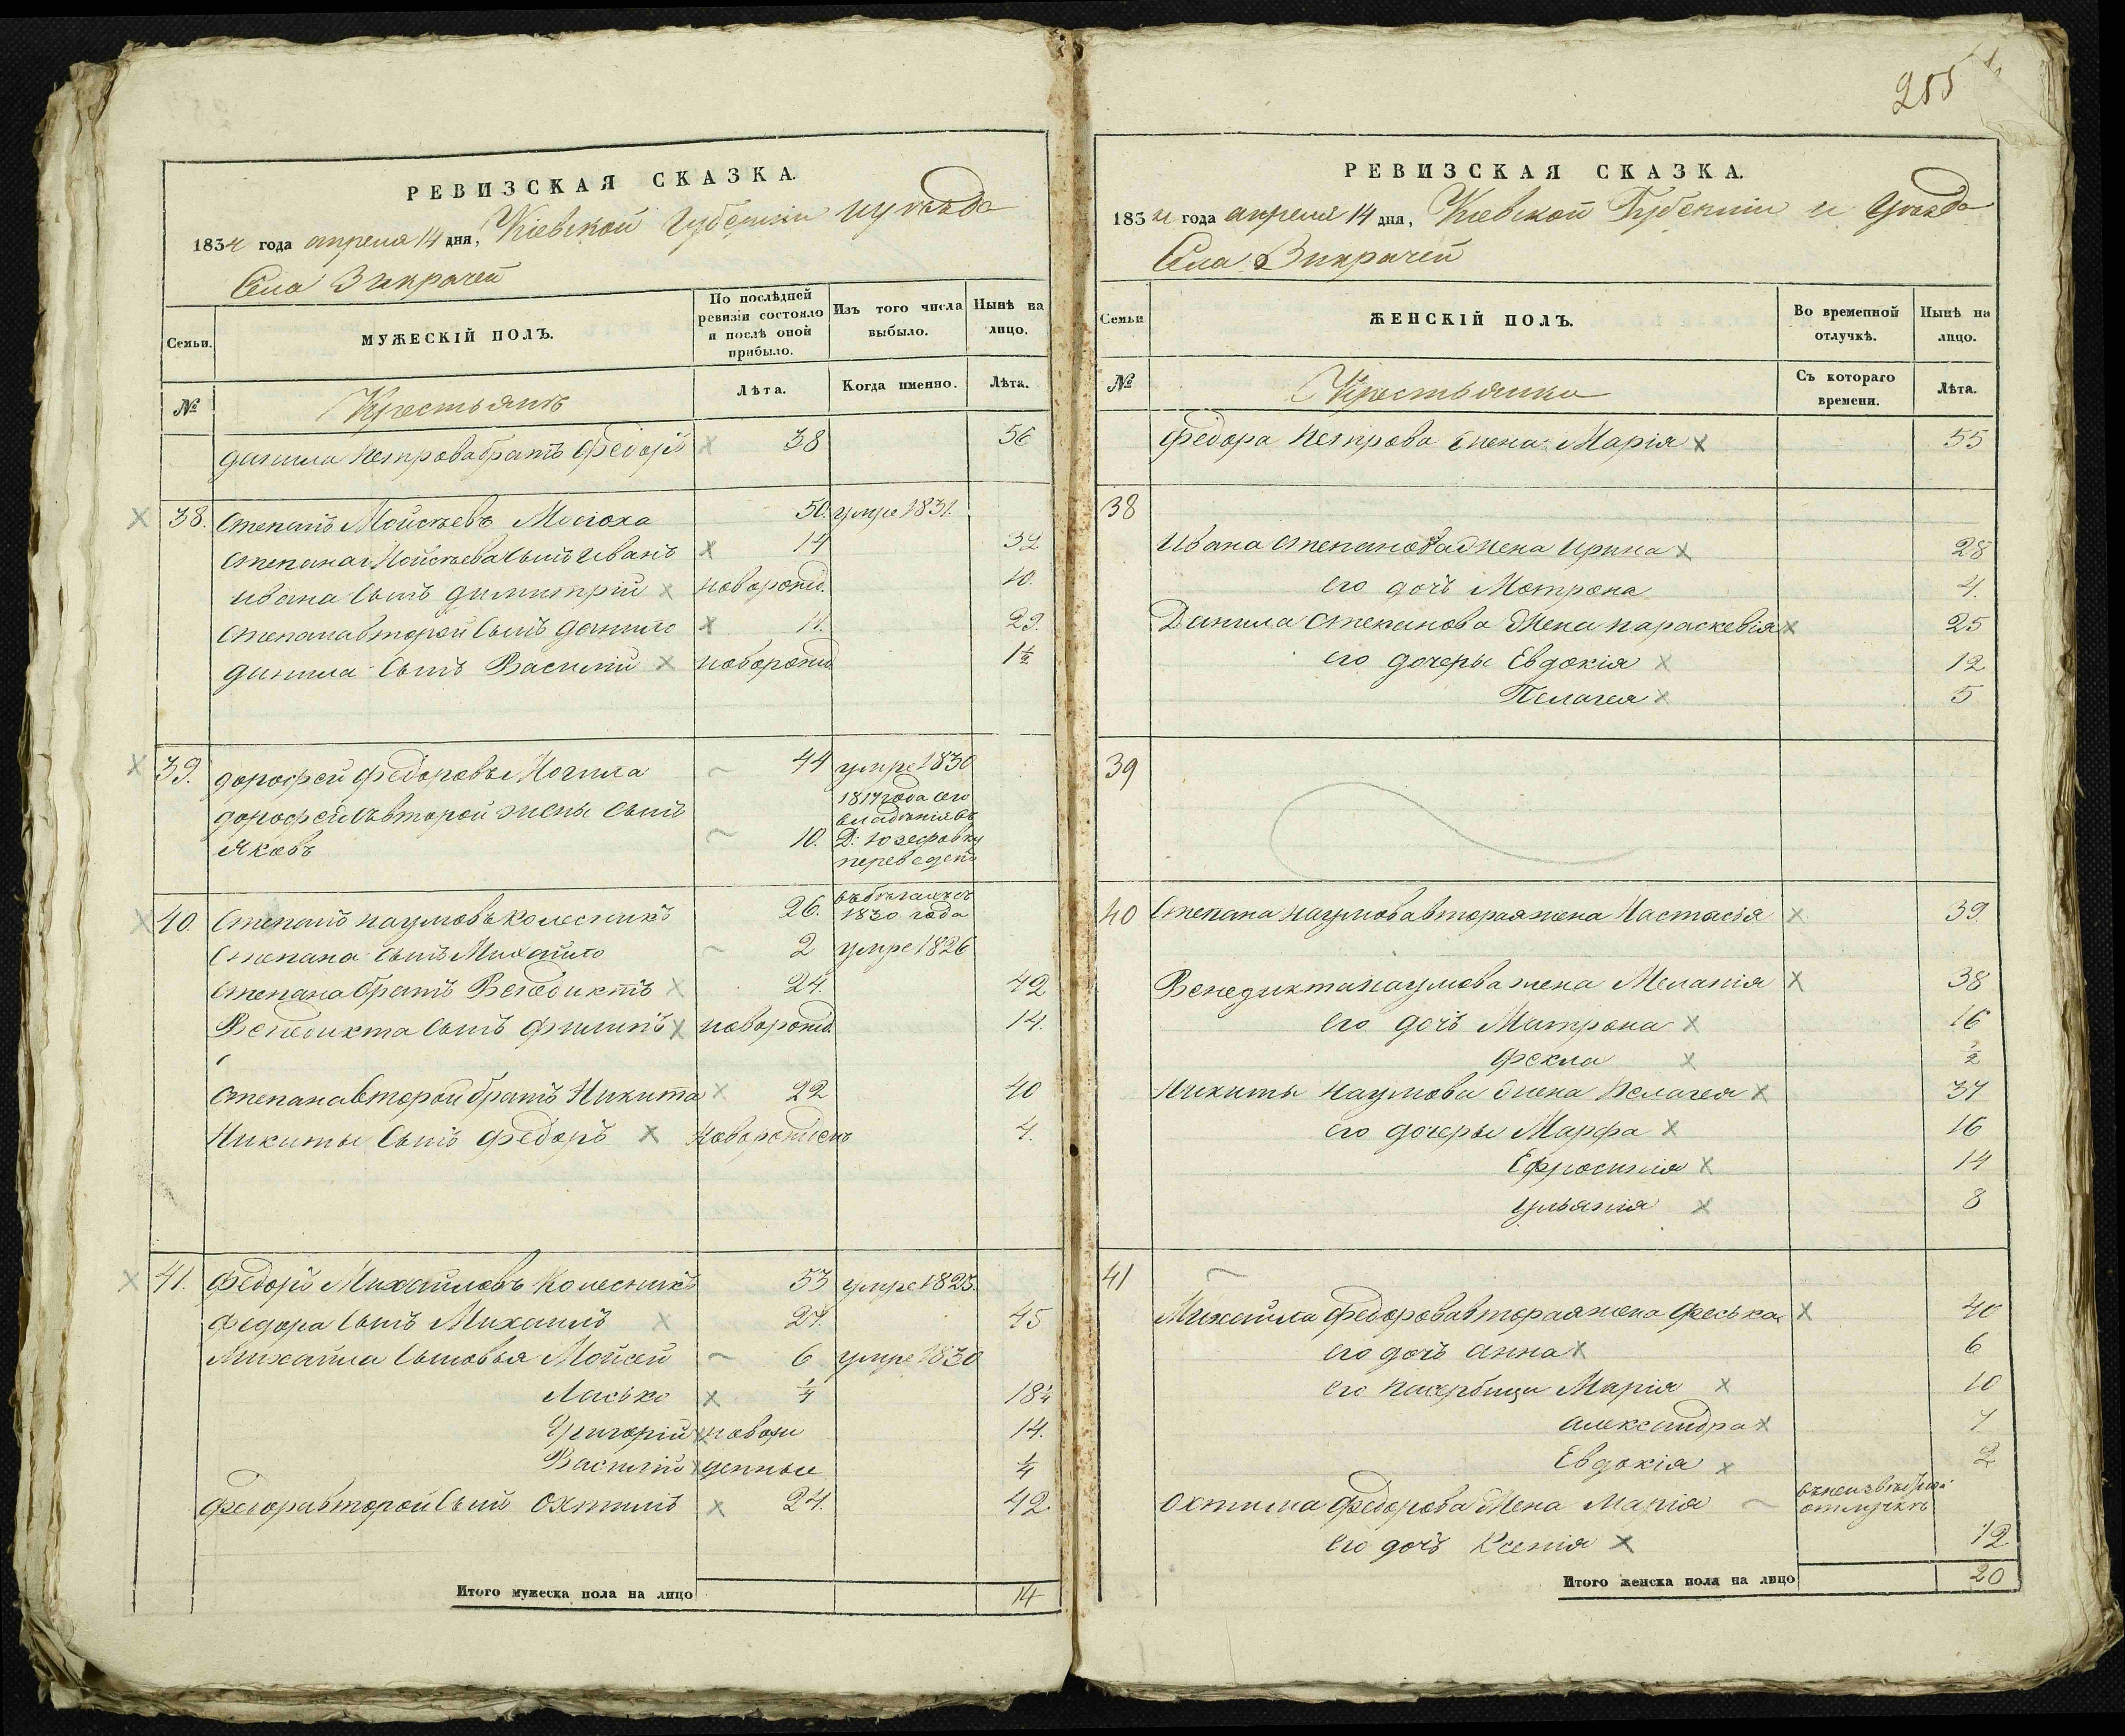 255
РЕВИЗСКАЯ СКАЗКА.
1834 года апреля 14 дня, Кіевской Губерніи и уѣзда
Села Викрачей
Семьи.
МУЖЕСКІЙ ПОЛЪ.
По послѣдней ревизіи состояло и послѣ оной прибыло.
Изъ того числа выбыло.
Нынѣ на лицо.
№
Крестьянъ
Лѣта.
Когда именно.
Лѣта.
данила Петрова братъ Федоръ 38 56
38. Степанъ Мойсѣевъ 50. умре 1831.
Степана Мойсѣева сынъ Иванъ 14 32
Ивана сынъ Димитрій новорожд. 10.
Степана второй сынъ данило 11. 29.
данила сынъ Василій новорожд 1½
39. дорофей Федоровъ Могила 44 умре 1830
дорофея съ второй жены сынъ
Яковъ 10. 1817 года сего владѣнія въ Д: Юзефовку переведенъ
40. Степанъ Наумовъ Колесникъ 26. 1830 года
Степана сынъ Михайло 2 умре 1826
Степана братъ Венедиктъ 24. 42
Венедикта сынъ Филипъ новорожд. 14.
Степана второй братъ Никита 22 40
Никиты сынъ Федоръ новорожденъ 4.
41. Федоръ Михайловъ Колесникъ 53 умре 1823.
Федора сынъ Михаилъ 27. 45
Михайла сыновья Мойсей 6 умре 1830
Ласько ¼ 18¼
Григорій новорж 14.
Василій денные ¼
Федора второй сынъ Охтимъ 24. 42.
Итого мужеска пола на лицо 14
РЕВИЗСКАЯ СКАЗКА.
1834 года апреля 14 дня, Кіевской Губерніи и Уѣзда
Села Викрачей
Семьи
ЖЕНСКІЙ ПОЛЪ.
Во временной отлучкѣ.
Нынѣ на лицо.
№
Крестьянка
Съ котораго времени.
Лѣта.
Федора Петрова жена Марія 55
38
Ивана Степанова жена Ирина 28
его дочъ Мотрона 4.
Данила Степанова жена Параскевія 25
его дочеры Евдокія 12
Пелагея 5
39
40 Степана Наумова вторая жена Настасія 39.
Венедикта Наумова жена Меланія 38
его дочъ Матрона 16
Фекла ½
Никиты Наумова жена Пелагея 37
его дочеры Марфа 16
Ефросинія 14
Ульянія 8
41
Михайла Федорова вторая жена Феська 40
его дочъ Анна 6
его пасербицы Марія 10
Александра 7
Евдокія 2
Охтима Федорова жена Марія въ неизвѣстной отлучкѣ
его дочъ Ксенія 12
Итого женска пола на лицо 20